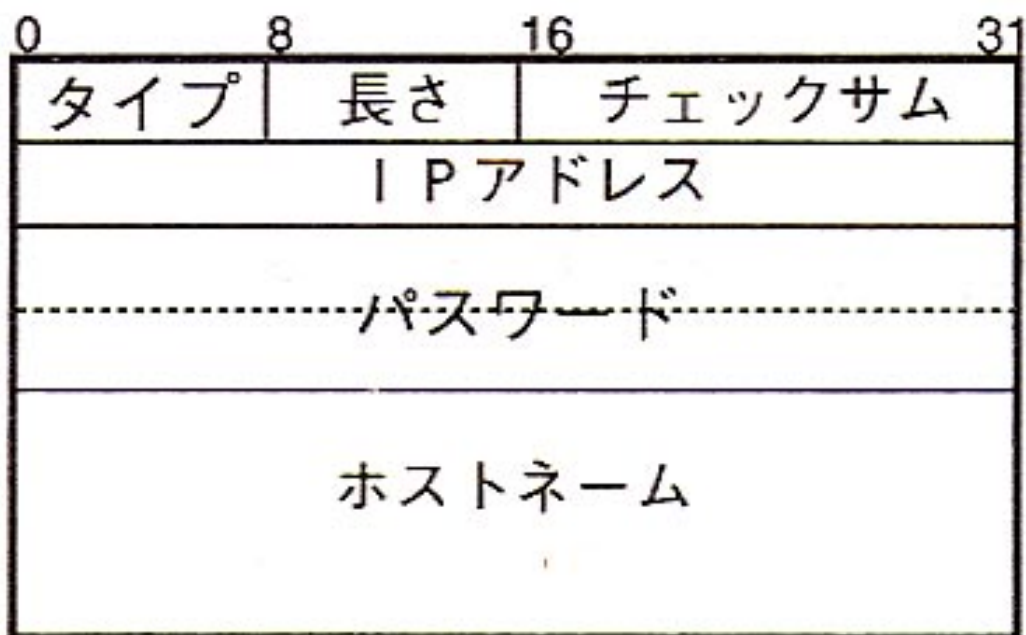 0 8 16 31
タイプ 長さ チェックサム
IPアドレス
パスワード
ホストネーム